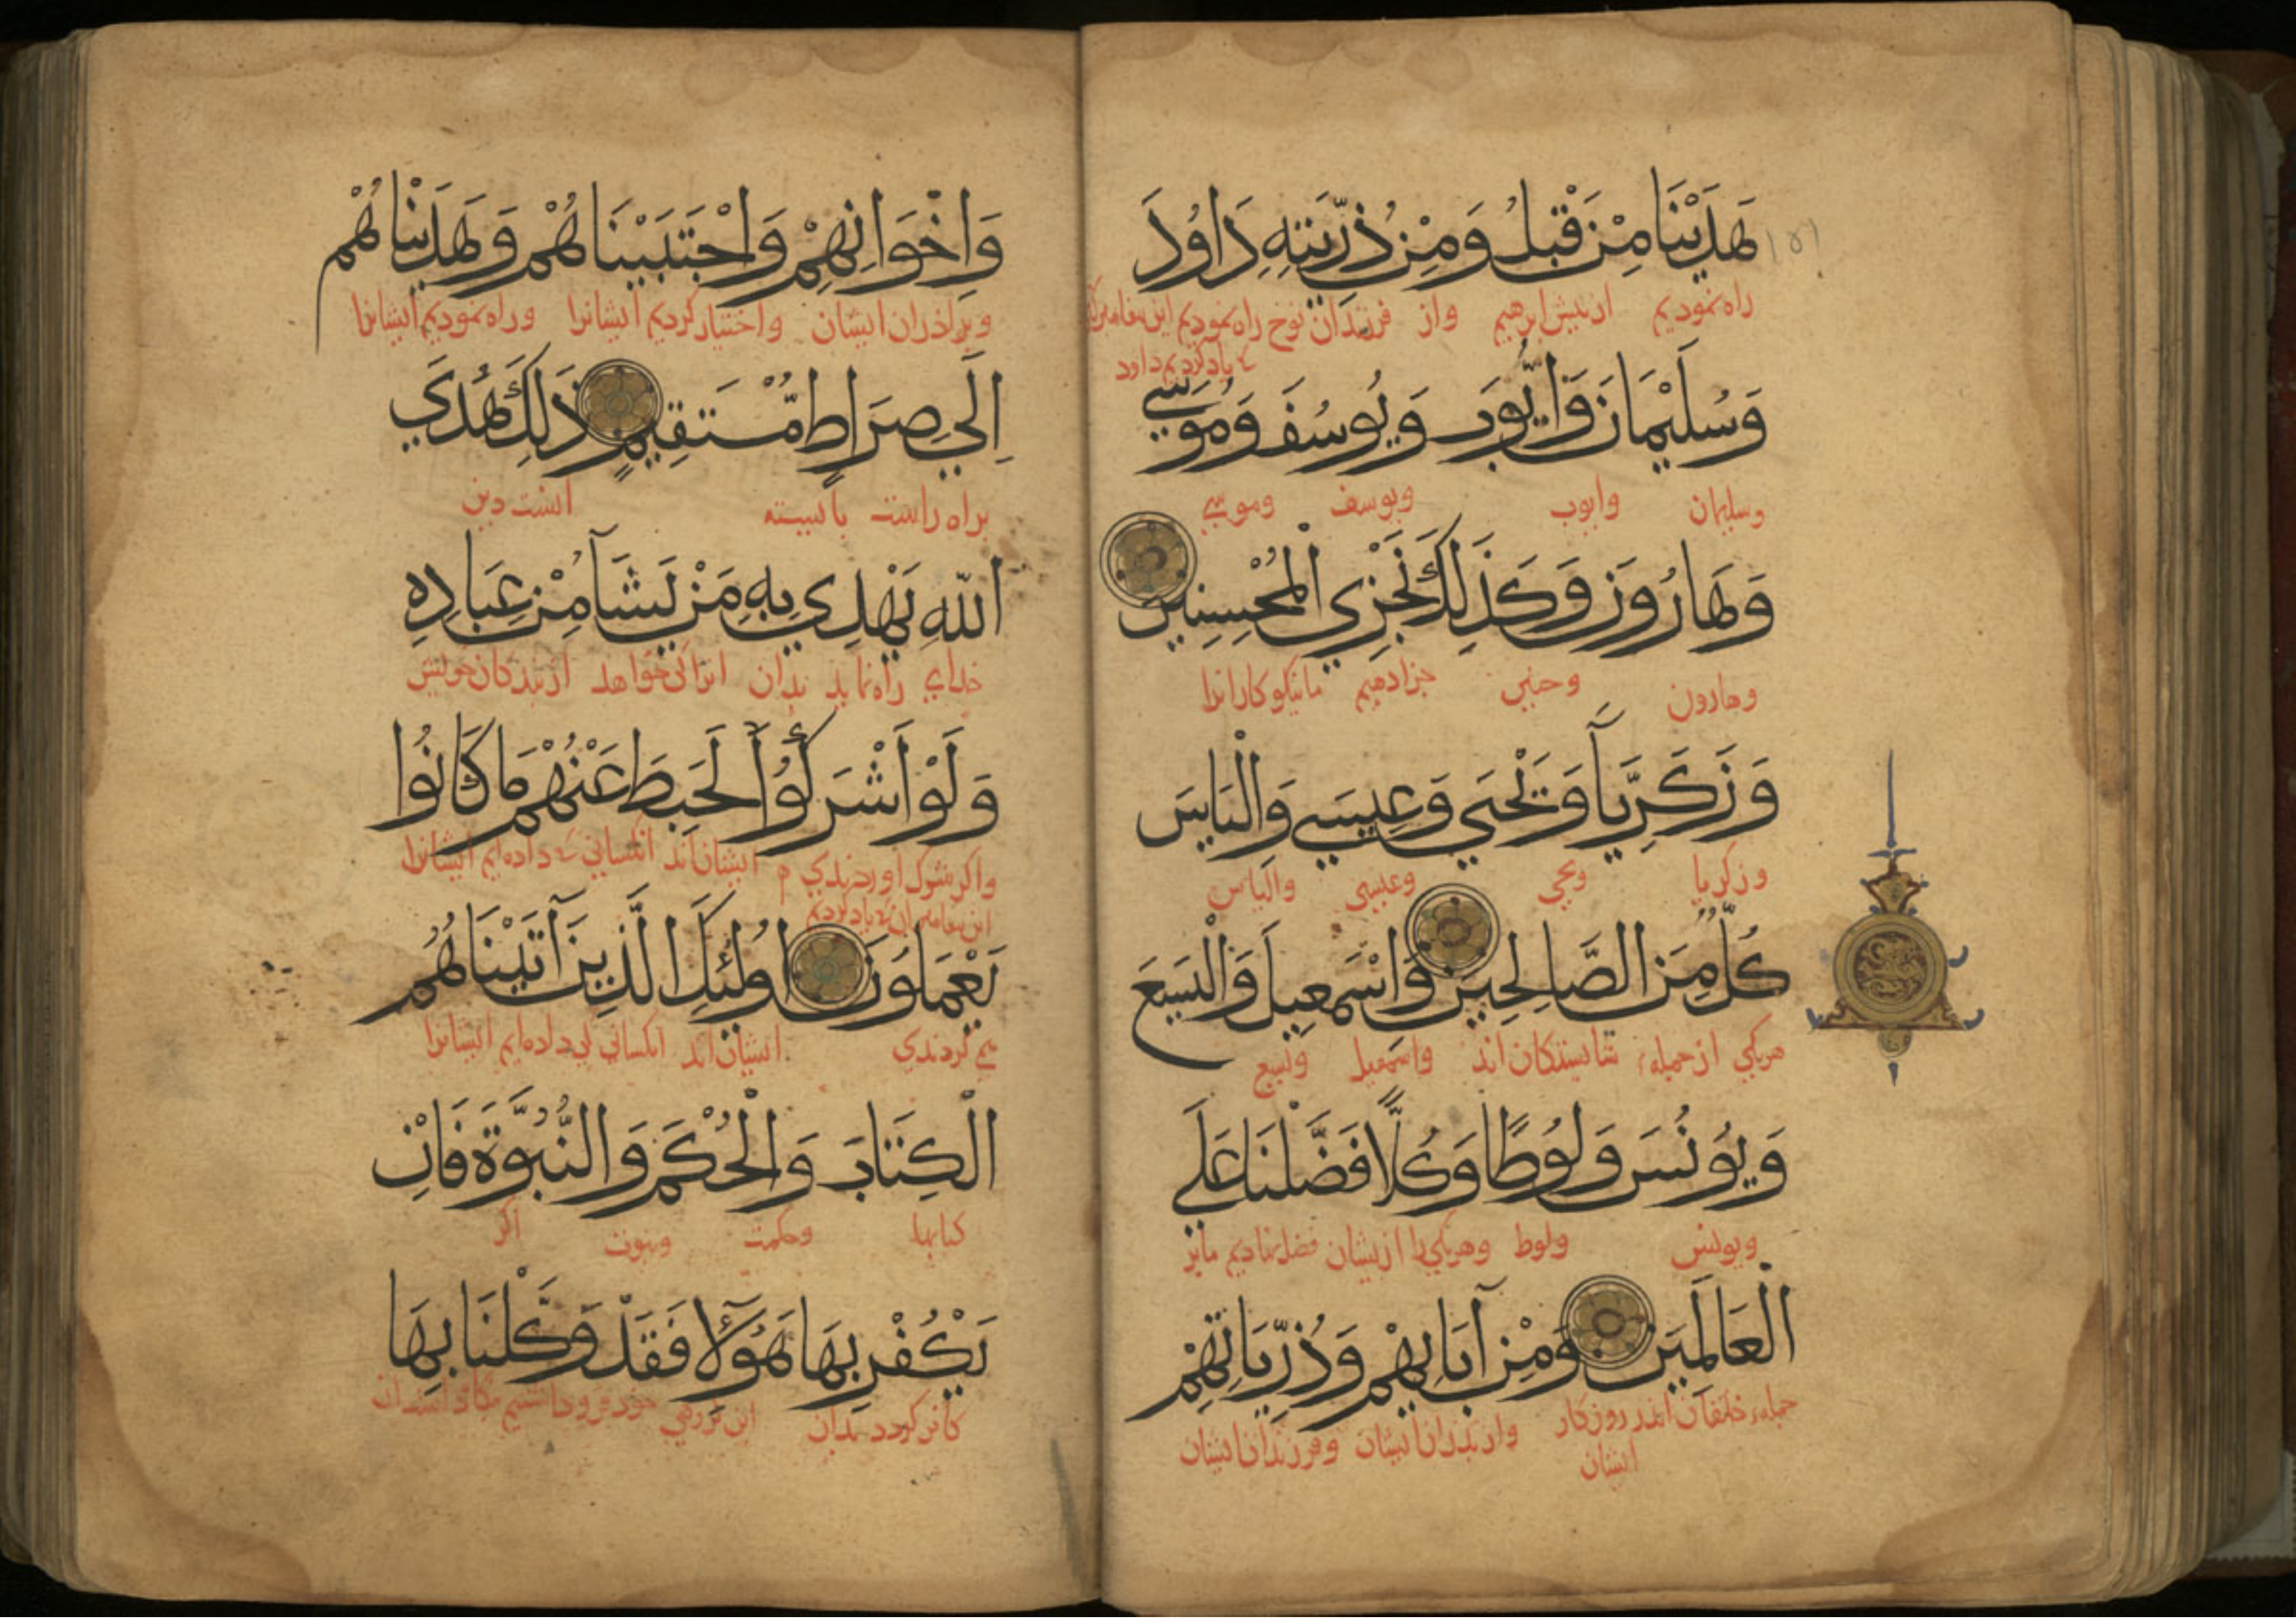 هَدَيْنَا مِنْ قَبْلُ وَمِنْ ذُرِّيَّتِهِ دَاوُدَ
راه نموديم از پیش ابرهیم واز فرزندان نوح راه نموديم
یاد کردیم داود
وَسُلَيْمَانَ وَاَيُّوبَ وَيُوسُفَ وَمُوسَى
وسلیمان وایوب ویوسف وموسی
وَهَارُونَ وَكَذَلِكَ نَجْزِي الْمُحْسِنِينَ
وهارون وچنین جزا دهیم ما نیکوکارانرا
وَزَكَرِيَّآ وَيَحْيَي وَعِيسَي وَالْيَاسَ
وزکریا ویحیی وعیسی والیاس
كُلٌّ مِنَ الصَّالِحِينَ وَاسْمَعِيلَ وَالْيَسَعَ
هریکی از جمله شایستگان اند واسمعیل ویسع
وَيُونُسَ وَلُوطًا وَكُلًّا فَضَّلْنَا عَلَي
ویونس ولوط وهریکی را ازیشان فضل نهادیم ما بر
الْعَالَمِينَ وَمِنْ آبَايِهِمْ وَذُرِّيَّاتِهِمْ
جمله خلقان اندر روزکار واز پدران ایشان وفرزندان ایشان
ایشان
وَاِخْوَانِهِمْ وَاجْتَبَيْنَاهُمْ وَهَدَيْنَاهُمْ
وبراذران ایشان واختیار کردیم ایشانرا وراه نمودیم ایشانرا
اِلَي صِرَاطٍ مُّسْتَقِيمٍ ذَلِكَ هُدَي
براه راست بایسته اینست دین
اللّهِ يَهْدِي بِهِ مَنْ يَشَآ مِنْ عِبَادِهِ
خدای راه نماید بدان انرا کی خواهد از بندکان خویش
وَلَوْ اَشْرَكُوا لَحَبِطَ عَنْهُمْ مَا كَانُوا
واکر شرک اوردندی ایشان اند انکسانی داده ایم ایشانرا
یاد کردیم
يَعْمَلُونَ اُولئِكَ الَّذِينَ آتَيْنَاهُمُ
می کردندی ایشان اند انکسانی کی داده ایم ایشانرا
الْكِتَابَ وَالْحُكْمَ وَالنُّبُوَّةَ فَاِنْ
کتابها وحکمت ونبوت اکر
يَكْفُرْ بِهَا هَؤُلَآ فَقَدْ وَكَّلْنَا بِهَا
کافر کردد بدان این کروهی